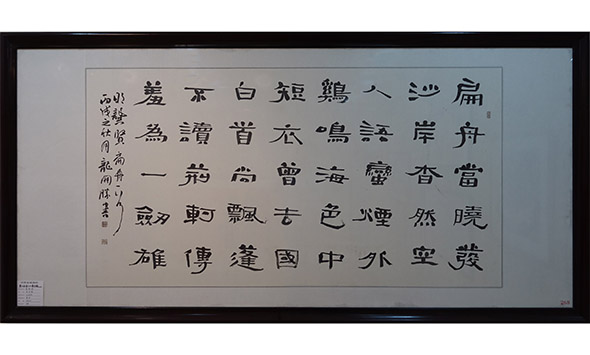 扁舟當曉發
沙岸杳然空
人語蠻煙外
鷄鳴海色中
短衣曾去國
白首尚飄蓬
不讀荊軻傳
羞為一劒雄
明龔賢扁舟
丙戌之秋月龍開勝書